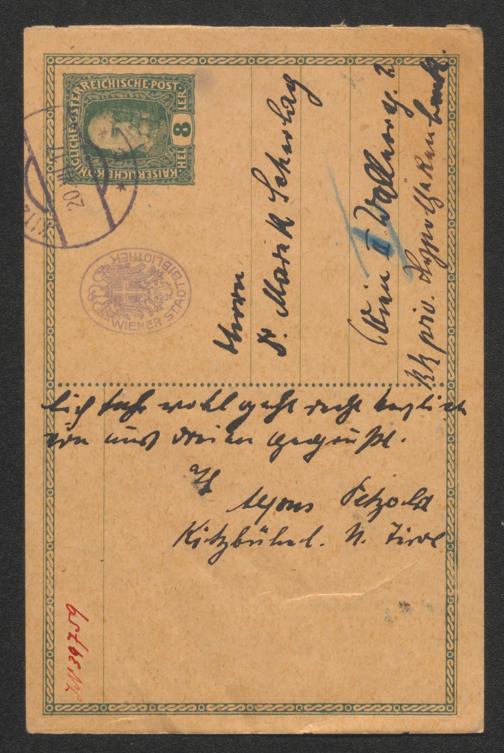 KAISERLICHE KÖNIGLICHE ÖSTERREICHISCHE POST
8
HELLER
20
WIENER STADTBIBLIOTHEK
Herrn
Dr. Marek Scherlag
Wien I Wallnerg. 2
kk priv. Hypothekenbank.
lich sehr wohl geht recht herzlich
von uns dreien gegrüßt.
Alfons Petzold
Kitzbühel. N. Tirol